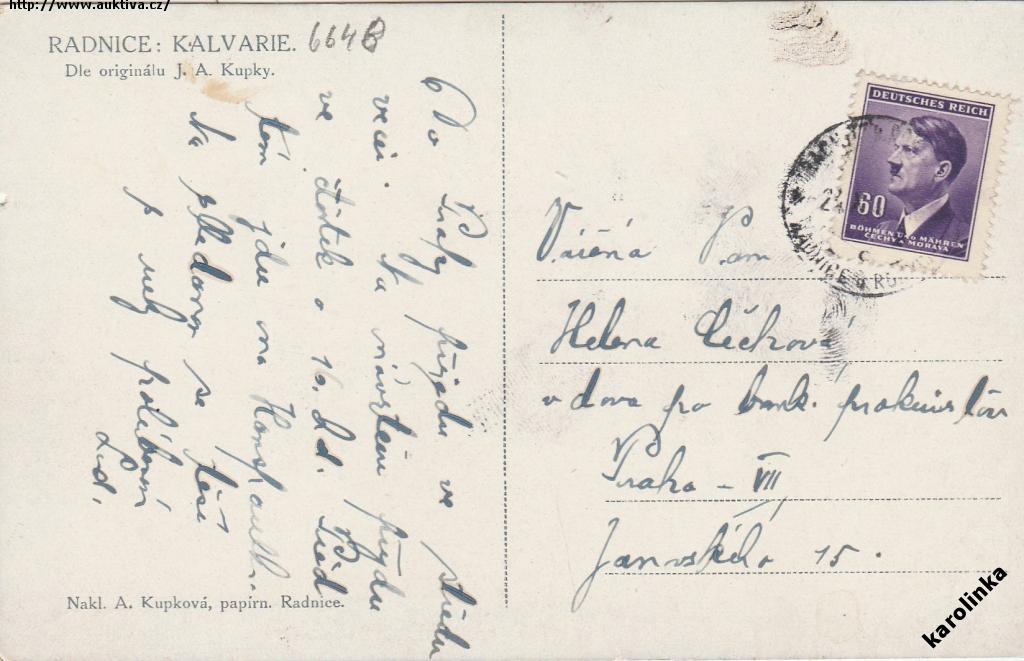 http://www.auktiva.cz/
RADNICE: KALVARIE. 664B
Dle originálu J. A. Kupky.
Do Prahy přijedu ve středu
večer. Na návštěvu přijdu
ve čtvrtek o 16. hod. Před
tím jdu na
Na shledanou se těší
a ruky políbení
Lud.
Nakl. A. Kupková, papírn. Radnice.
DEUTSCHES REICH
60
BÖHMEN UND MÄHREN
ČECHY A MORAVA
RADNICE u RO
Vážená Paní
Helena Čečková
vdova po bank. prokuristovi
Praha - VII
Janovského 15.
karolinka